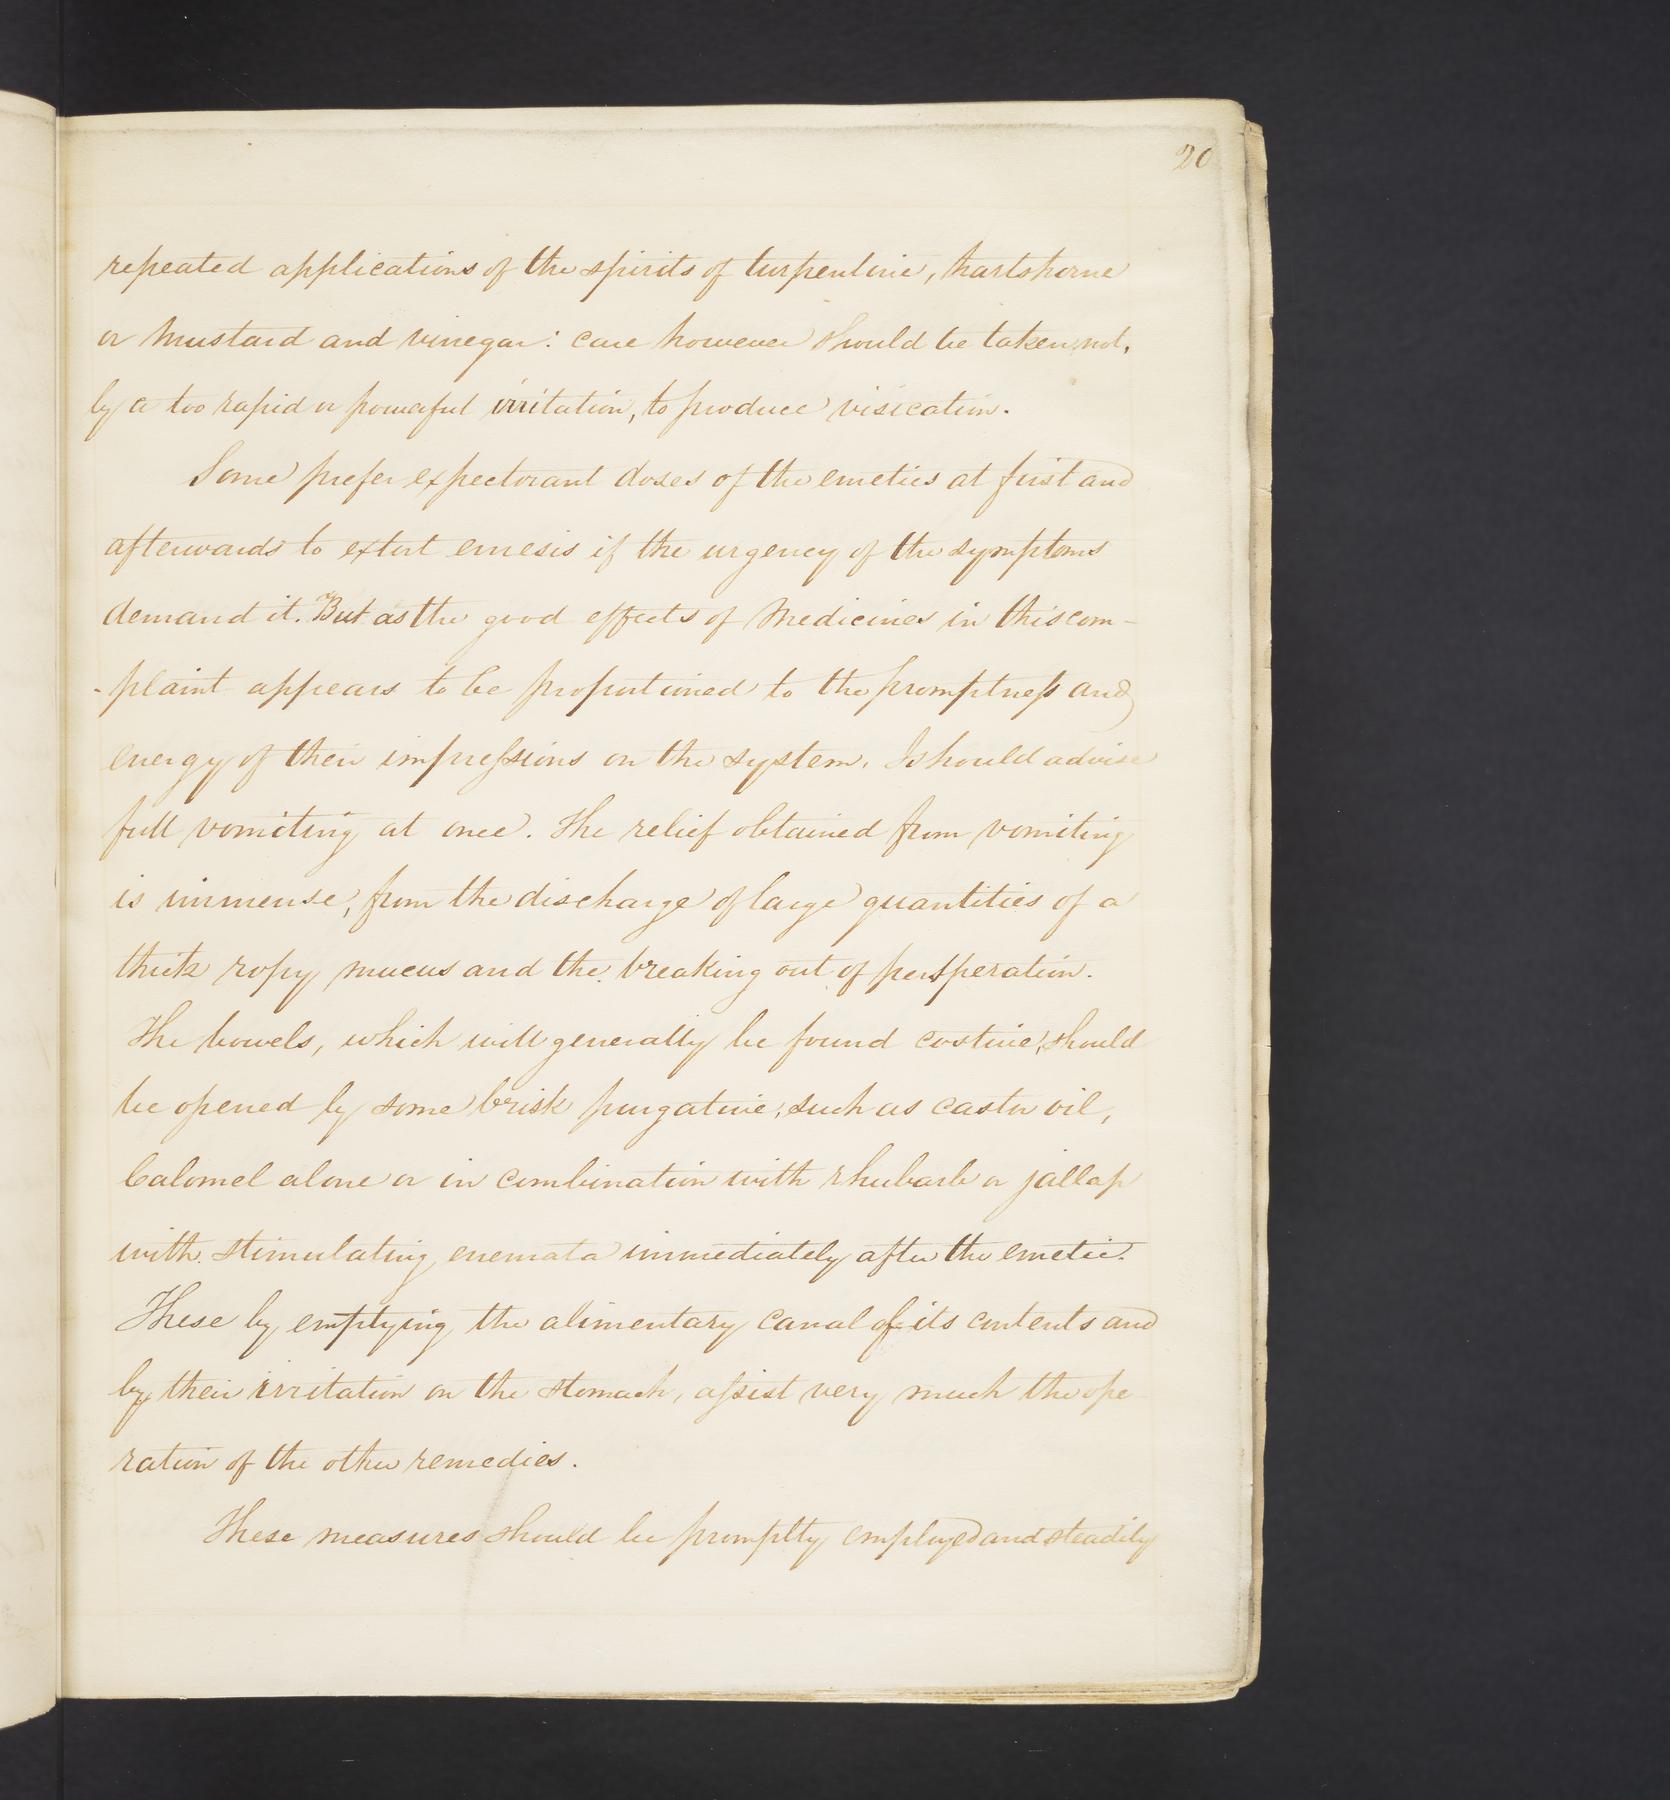 20
repeated applications of the spirits of turpentine, hartshorne
or mustard and vinegar: care however should be taken not,
by a too rapid or powerful irritation, to produce visication.
Some prefer expectorant doses of the emetics at first and
afterwards to extort emesis if the urgency of the symptoms
demand it. But as the good effects of medicines in this com-
-plaint appears to be proportioned to the promptness and
energy of their impressions on the system, I should advise
full vomiting at once. The relief obtained from vomiting
is immense, from the discharge of large quantities of a
thick ropy mucus and the breaking out of persperation.
The bowels, which will generally be found costive, should
be opened by some brisk purgative, such as castor oil,
Calomel alone or in combination with rhubarb or jallap
with stimulating enemata immediately after the emetic.
These by emptying the alimentary canal of its contents and
by their irritation on the stomach, assist very much the ope
ration of the other remedies.
These measures should be promplty employed and steadily